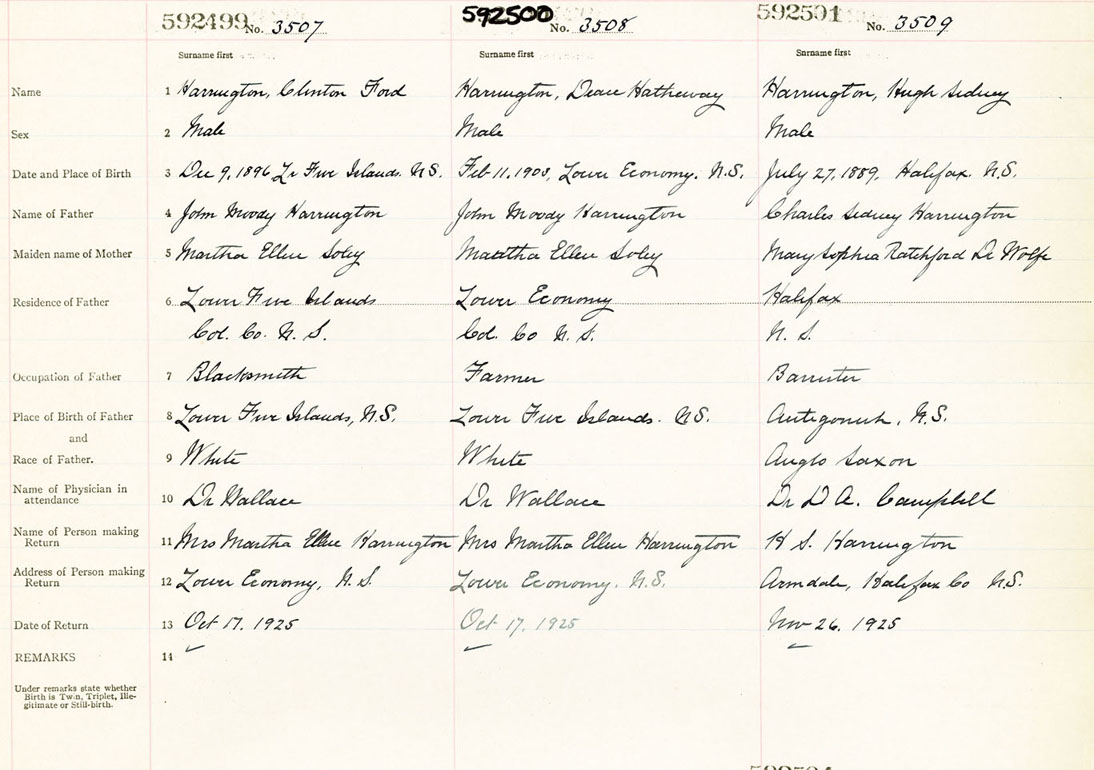 592499 No. 3507 592500 No. 3508 592501 No. 3509
Surname first Surname first Surname first
Name 1 Harrington, Clinton Ford Harrington, Deane Hatheway Harrington, Hugh Sidney
Sex 2 Male Male Male
Date and Place of Birth 3 Dec 9, 1896 Lr Five Islands. N.S. Feb 11, 1900, Lower Economy. N.S. July 27, 1889, Halifax N.S.
Name of Father 4 John Moody Harrington John Moody Harrington Charles Sidney Harrington
Maiden name of Mother 5 Martha Ellen Soley Martha Ellen Soley Mary Sophia Ratchford De Wolfe
Residence of Father 6 Lower Five Islands Lower Economy Halifax
Col. Co. N. S. Col. Co N. S. N. S.
Occupation of Father 7 Blacksmith Farmer Barrister
Place of Birth of Father 8 Lower Five Islands, N.S. Lower Five Islands. N.S. Antigonish, N.S.
and
Race of Father. 9 White White Anglo Saxon
Name of Physician in attendance 10 Dr Wallace Dr Wallace Dr D A. Campbell
Name of Person making Return 11 Mrs Martha Ellen Harrington Mrs Martha Ellen Harrington H S. Harrington
Address of Person making Return 12 Lower Economy, N.S. Lower Economy. N.S. Armdale, Halifax Co N.S.
Date of Return 13 Oct 17. 1925 Oct 17. 1925 Nov 26. 1925
REMARKS 14
Under remarks state whether
Birth is Twin, Triplet, Ille-
gitimate or Still-birth.